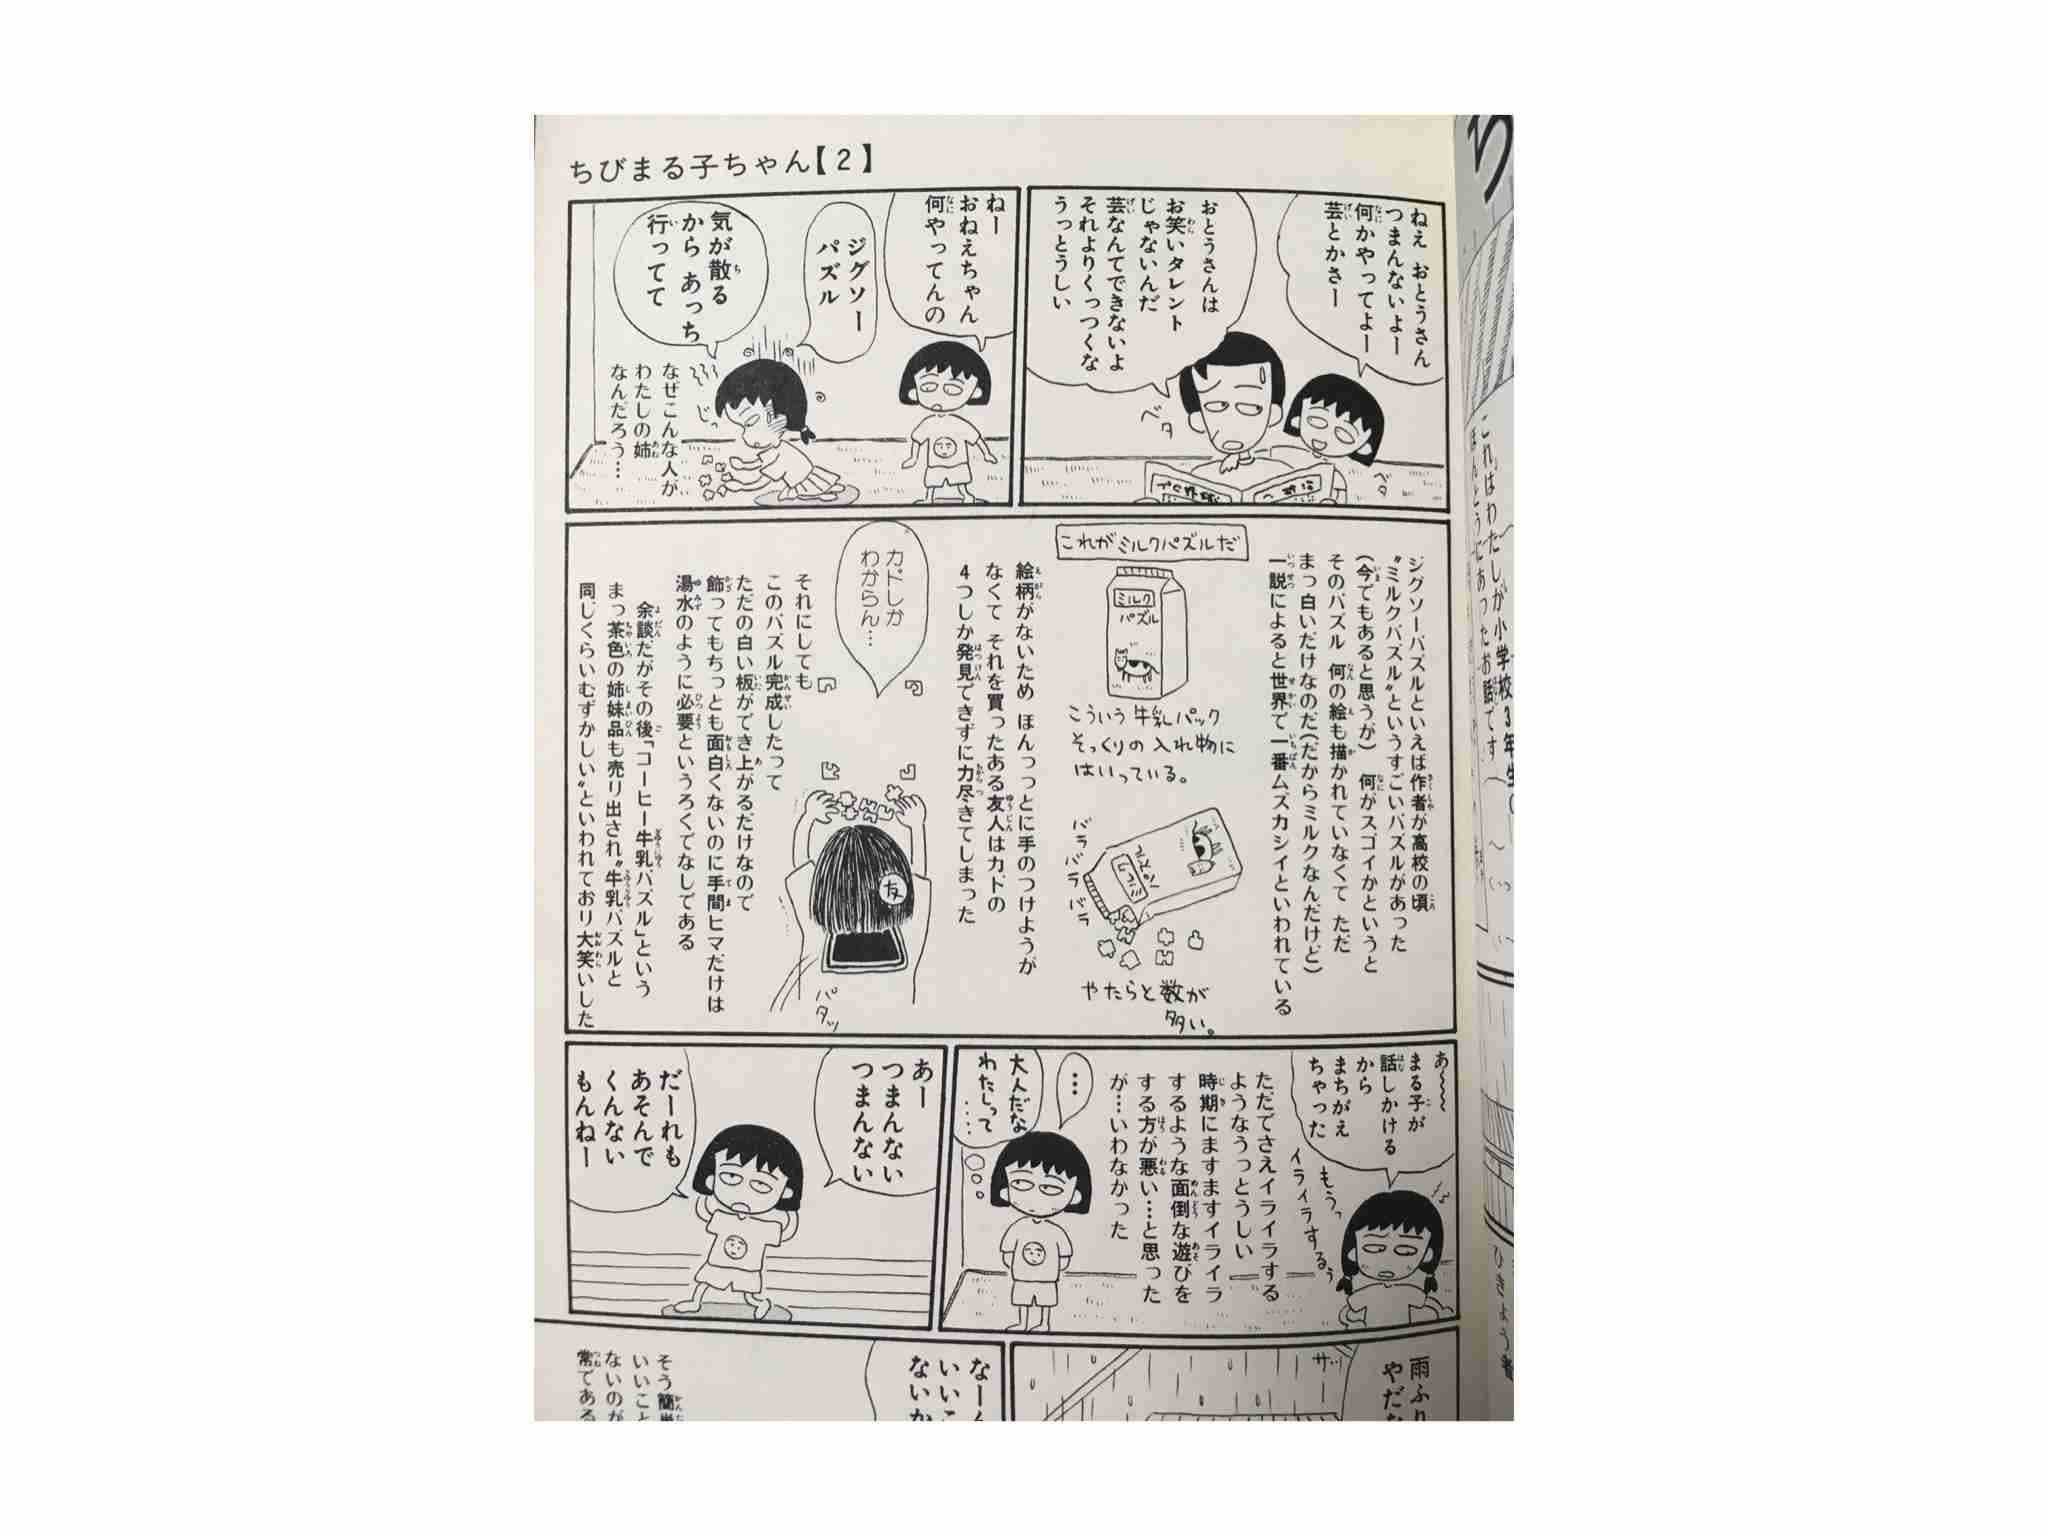 ちびまる子ちゃん【2】
ねえ おとうさん
つまんないよー
何かやってよー
芸とかさー
おとうさんは
お笑いタレント
じゃないんだ
芸なんてできないよ
それよりくっつくな
うっとうしい
ベタ
ベタ
ねー
おねえちゃん
何やってんの
ジグソー
パズル
気が散る
から あっち
行ってて
じっ
なぜこんな人が
わたしの姉
なんだろう…
ジグソーパズルといえば作者が高校の頃
“ミルクパズル”というすごいパズルがあった
(今でもあると思うが) 何がスゴイかというと
そのパズル 何の絵も描かれていなくて ただ
まっ白いだけなのだ(だからミルクなんだけど)
一説によると世界で一番ムズカシイといわれている
これがミルクパズルだ
ミルク
パズル
こういう 牛乳パック
そっくりの 入れ物に
はいっている。
バラ
バラ
バラ
ミルク
パズル
やたらと数が
多い。
絵柄がないため ほんっっとに手のつけようが
なくて それを買ったある友人はカドの
4つしか発見できずに力尽きてしまった
カドしか
わからん…
友
パタッ
それにしても
このパズル完成したって
ただの白い板ができ上がるだけなので
飾ってもちっとも面白くないのに手間ヒマだけは
湯水のように必要というろくでなしである
余談だがその後「コーヒー牛乳パズル」という
まっ茶色の姉妹品も売り出され“牛乳パズルと
同じくらいむずかしい”といわれており大笑いした
あ〜〜〜
まる子が
話しかける
から
まちがえ
ちゃった
もうっ
イライラするぅ
ただでさえイライラする
ようなうっとうしい
時期にますますイライラ
するような面倒な遊びを
する方が悪い…と思った
が…いわなかった
…
大人だな
わたしって
……
あー
つまんない
つまんない
だーれも
あそんで
くんない
もんねー
雨ふり
やだな
サッ
なーん
いいこ
ないか
そう簡単
いいこと
ないのが
常である
これはわたしが小学校3年生
ほんとうにあったお話です